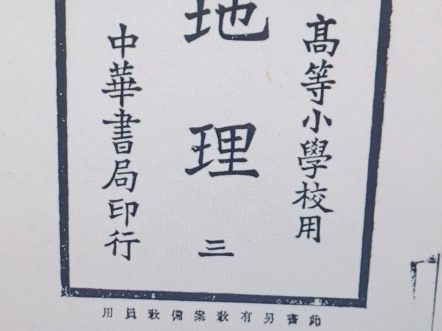 高等小學校用
地理
三
中華書局印行
此書另有教案備教員用